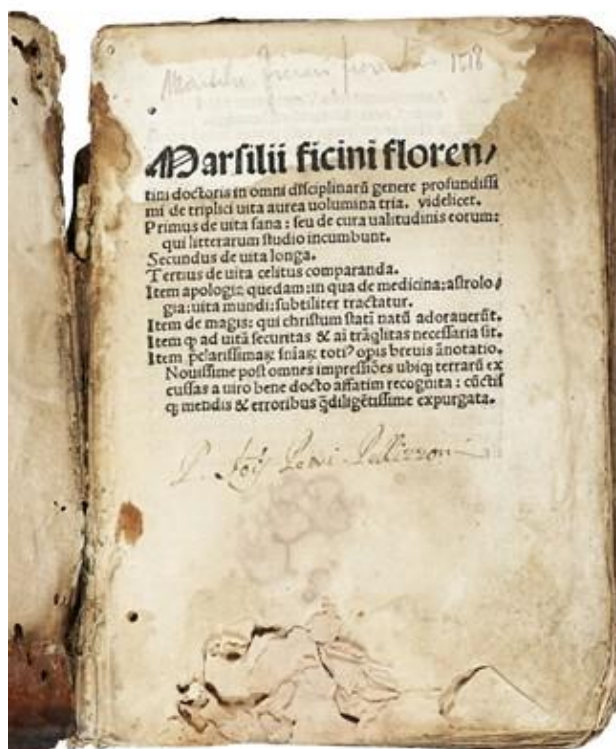 Marsilii ficini floren/
tini doctoris in omni disciplinarū genere profundissi
mi de triplici uita aurea uolumina tria. videlicet.
Primus de uita sana: seu de cura ualitudinis eorum:
qui litterarum studio incumbunt.
Secundus de uita longa.
Tertius de uita celitus comparanda.
Item apologia quedam: in qua de medicina: astrolo/
gia: uita mundi: subtiliter tractatur.
Item de magis: qui christum statī natū adorauerūt.
Item ꝙ ad uitā securitas & aī trāꝗlitas necessaria sit.
Item toti⁹ opis breuis ānotatio.
Nouissime post omnes impressiōes ubiqꝫ terrarū ex
cussas a uiro bene docto affatim recognita: cūctis
qꝫ mendis & erroribus ꝗ̃diligētissime expurgata.
1518